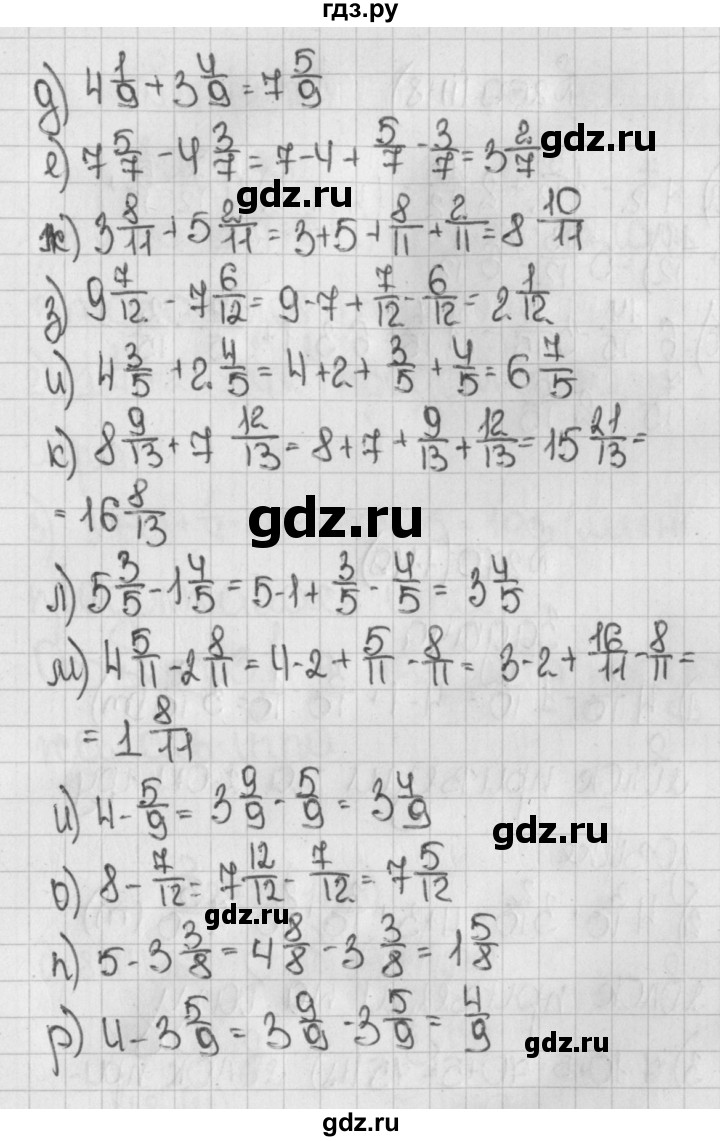 гдз.ру
д) 4 1/9 + 3 4/9 = 7 5/9
е) 7 5/7 - 4 3/7 = 7-4 + 5/7 - 3/7 = 3 2/7
gdz.ru
gdz.ru
ж) 3 8/11 + 5 2/11 = 3+5 + 8/11 + 2/11 = 8 10/11
з) 9 7/12 - 7 6/12 = 9-7 + 7/12 - 6/12 = 2 1/12
и) 4 3/5 + 2 4/5 = 4+2+ 3/5 + 4/5 = 6 7/5
к) 8 9/13 + 7 12/13 = 8+7 + 9/13 + 12/13 = 15 21/13 =
= 16 8/13
gdz.ru
л) 5 3/5 - 1 4/5 = 5-1+ 3/5 - 4/5 = 3 4/5
м) 4 5/11 - 2 8/11 = 4-2 + 5/11 - 8/11 = 3-2 + 16/11 - 8/11 =
= 1 8/11
и) 4 - 5/9 = 3 9/9 - 5/9 = 3 4/9
gdz.ru
о) 8 - 7/12 = 7 12/12 - 7/12 = 7 5/12
gdz.ru
п) 5 - 3 3/8 = 4 8/8 - 3 3/8 = 1 5/8
р) 4 - 3 5/9 = 3 9/9 - 3 5/9 = 4/9
gdz.ru
gdz.ru